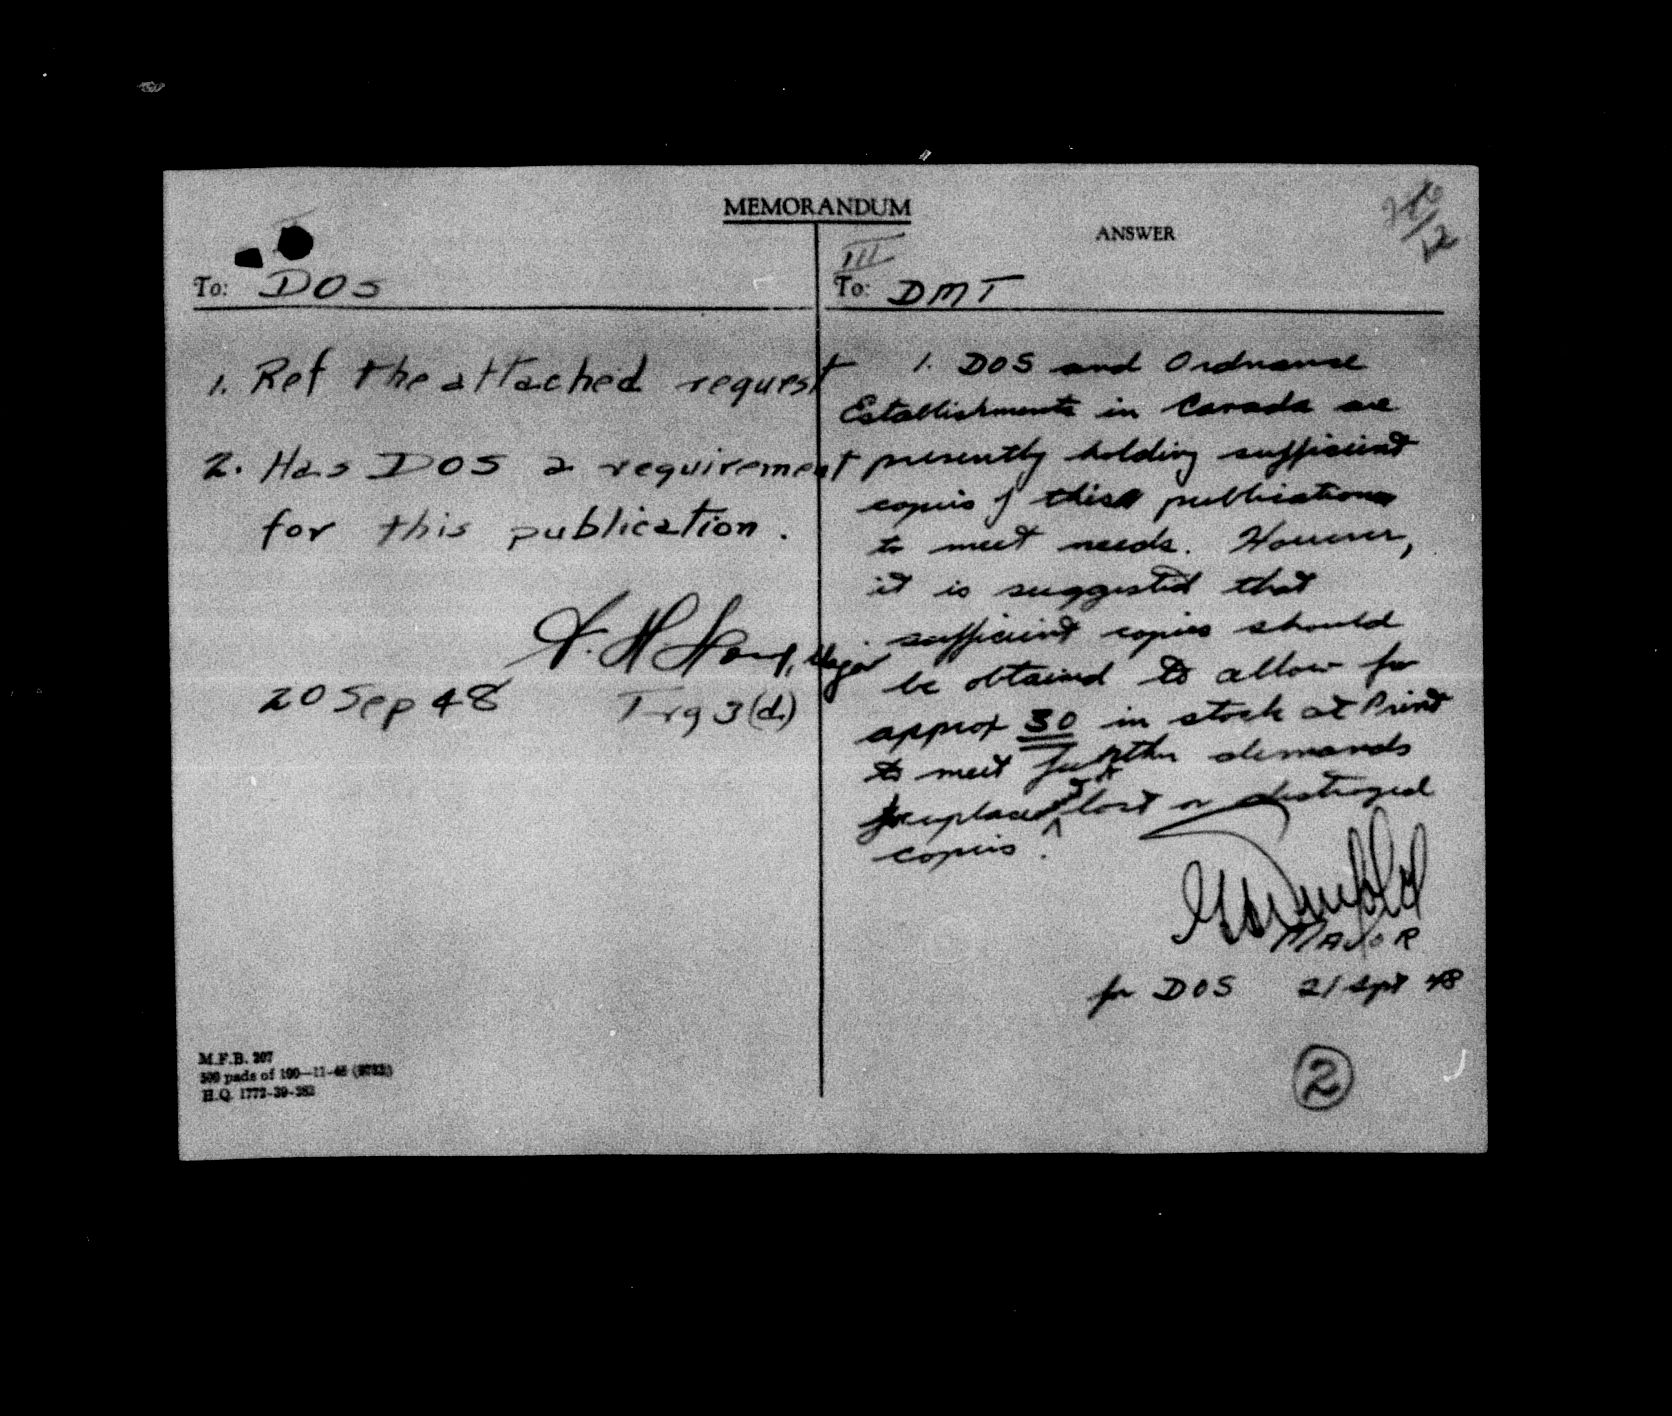 MEMORANDUM
To: DOS
1. Ref the attached request
2. Has DOS a requirement
for this publication.
Major
20 Sep 48 Trg 3(d.)
M.F.B. 207
500 pads of 100—11-46
H.Q. 1772-39-282
ANSWER
III
To: DMT
1. DOS and Ordnance
Establishments in Canada are
presently holding sufficient
copies of this publication
to meet needs. However,
it is suggested that
sufficient copies should
be obtained to allow for
approx 30 in stock at Print
to meet further demands
replace lost or destroyed
copies.
MAJOR
for DOS 21 Sept 48
2